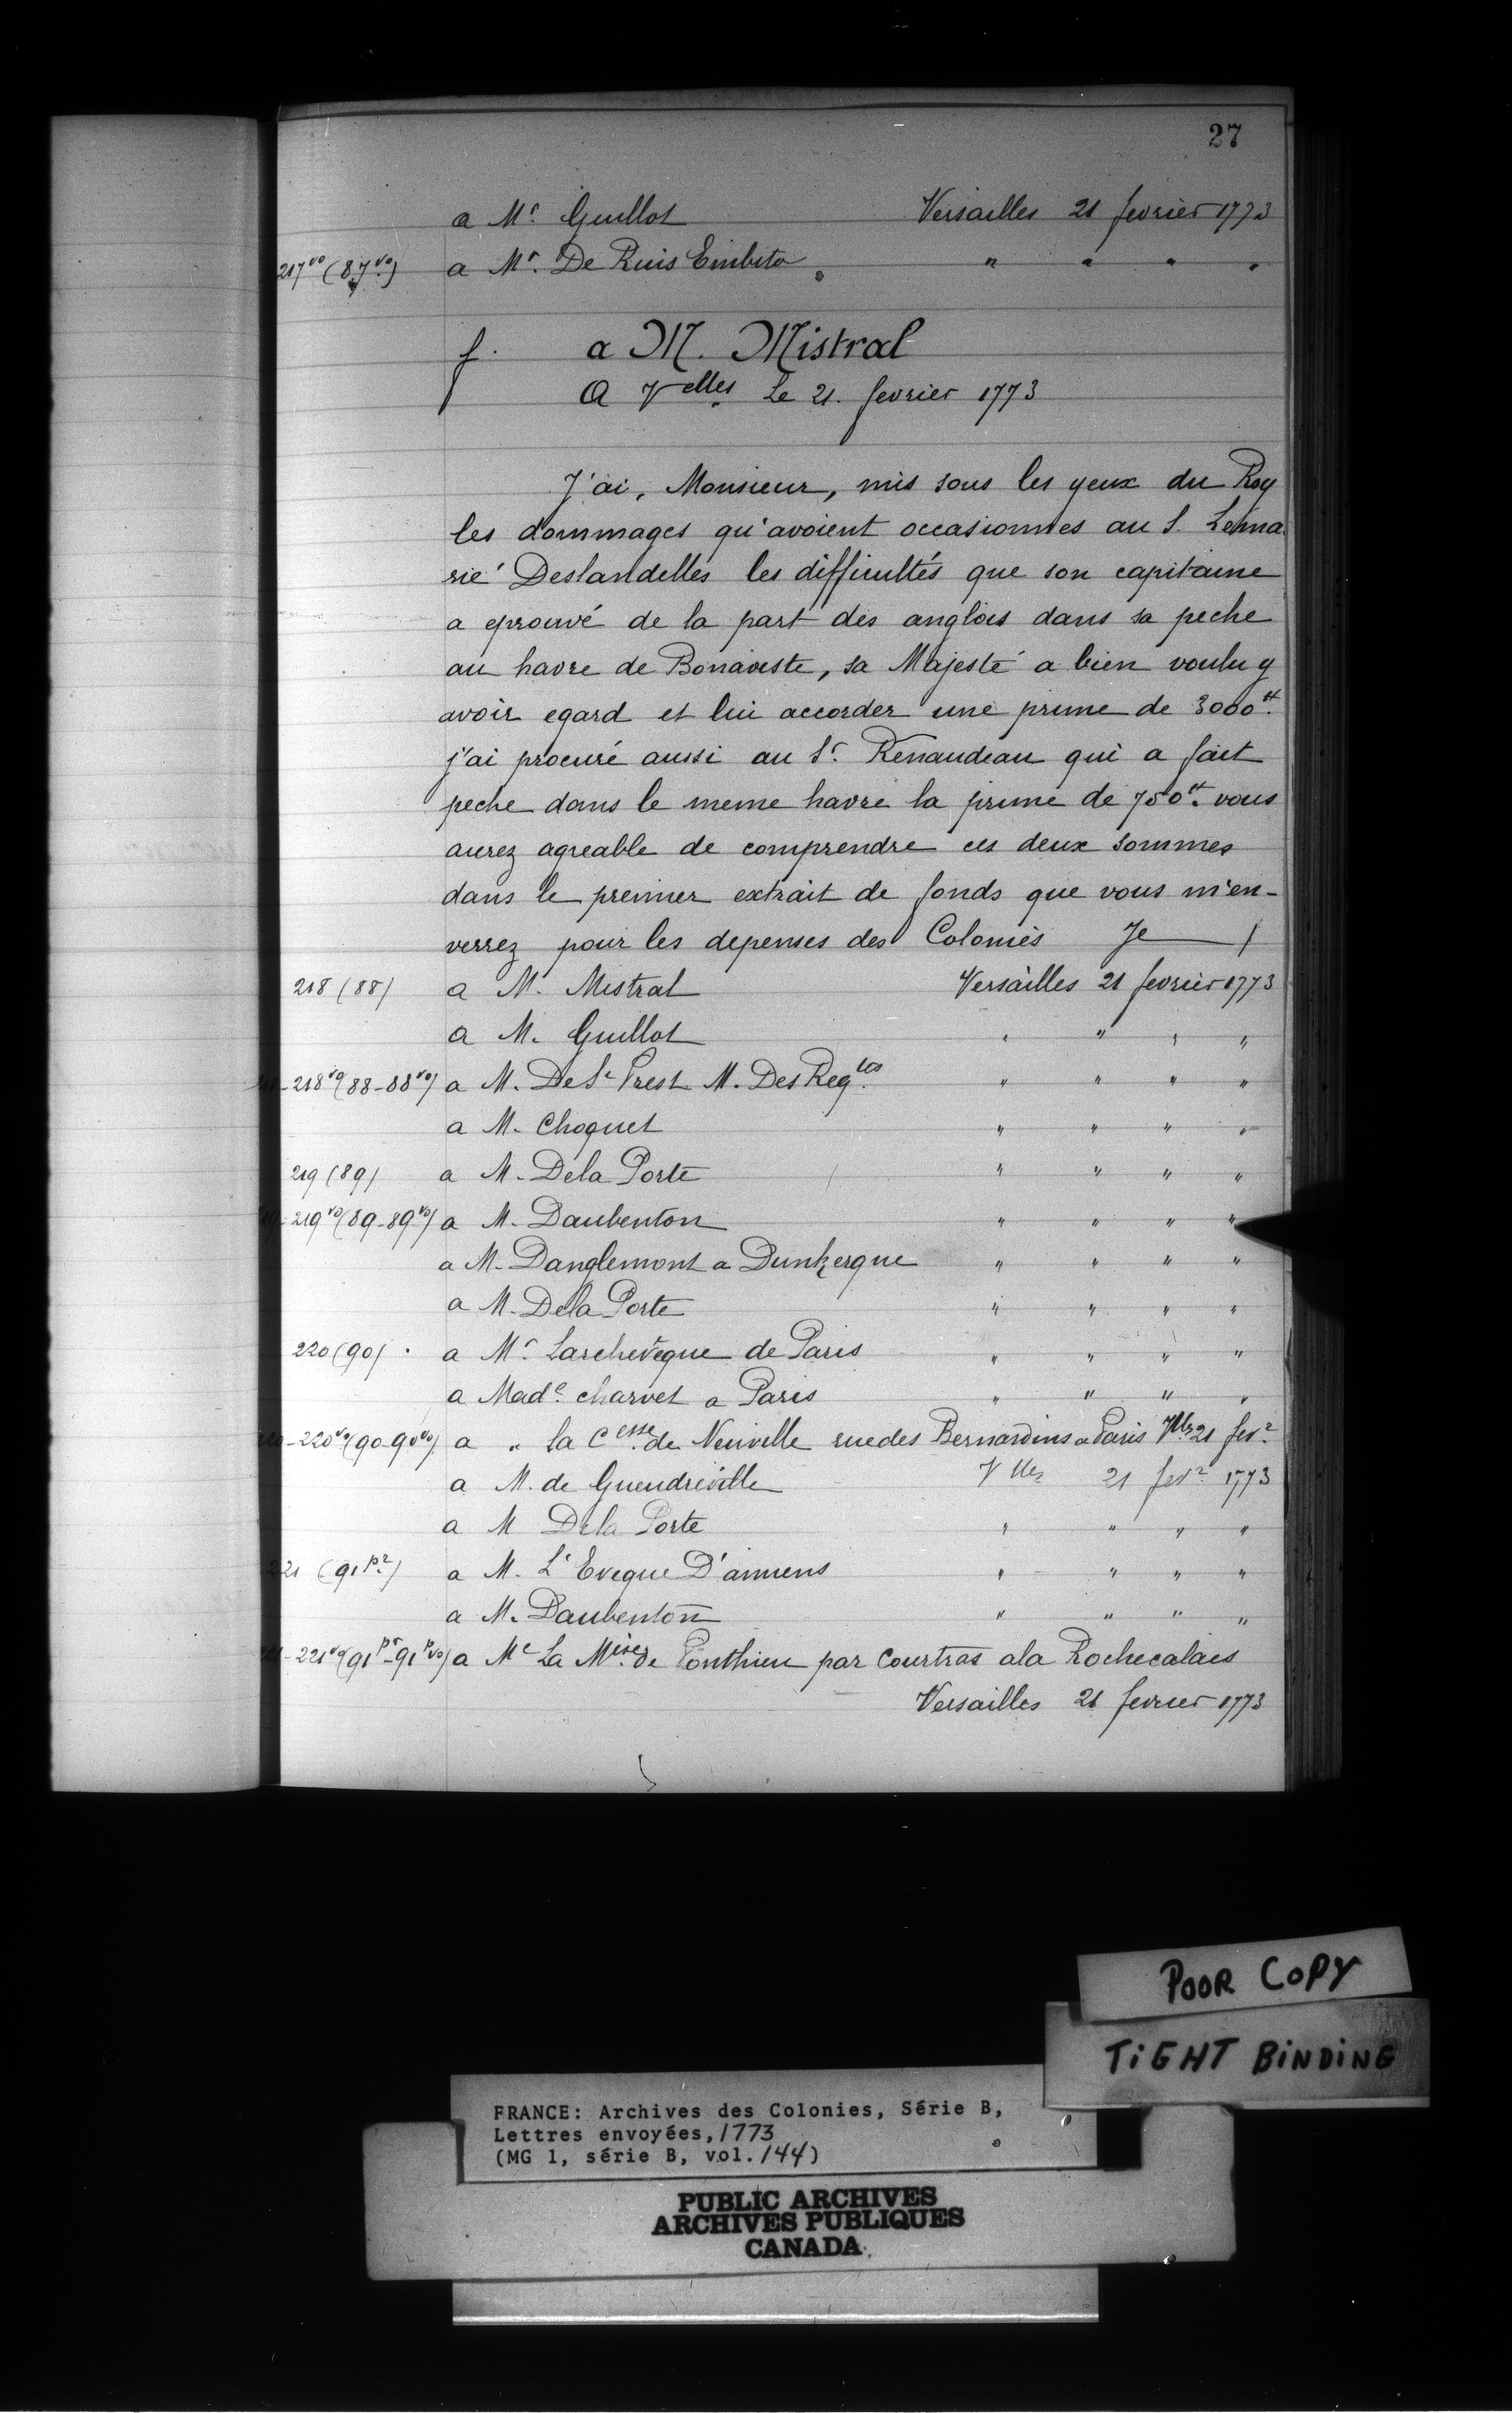 27
a Mr. Guillot Versailles 21 fevrier 1773
217vo (87vo) a Mr. De Ruis Embito " " " "
f. a M. Mistral
A Velles Le 21. fevrier 1773
J'ai, Monsieur, mis sous les yeux du Roy
les dommages qu'avoient occasionnes au S. Lema
rié Deslandelles les difficultés que son capitaine
a eprouvé de la part des anglois dans sa peche
au havre de Bonaviste, sa Majesté a bien voulu y
avoir egard et lui accorder une prime de 3000tt.
j'ai procuré aussi au Sr. Renaudeau qui a fait
peche dans le meme havre la prime de 750tt. vous
aurez agreable de comprendre ces deux sommes
dans le premier extrait de fonds que vous m'en-
verrez pour les depenses des Colonies Je /
218 (88) a M. Mistral Versailles 21 fevrier 1773
a M. Guillot " " " "
-218vo (88-88vo) a M. De St Prest M. Des Reqtes " " " "
a M. Choquet " " " "
219 (89) a M. Dela Porte " " " "
-219vo (89-89vo) a M. Daubenton " " " "
a M. Danglemont a Dunkerque " " " "
a M. Dela Porte " " " "
220 (90) . a Mr. Larcheveque de Paris " " " "
a Made. charvet a Paris " " " "
-220vo (90-90vo) a " la Cesse. de Neuville rue des Bernardins a Paris Vlles 21 fevr.
a M. de Gueudreville Vlles 21 fevr. 1773
a M Dela Porte " " " "
221 (91 pr.) a M. L'Eveque D'amiens " " " "
a M. Daubenton " " " "
-221vo (91pr-91pvo) a Me La Mise. de Ponthieu par Courtras a la Rochecalais
Versailles 21 fevrier 1773
POOR COPY
TIGHT BINDING
FRANCE: Archives des Colonies, Série B,
Lettres envoyées, 1773
(MG 1, série B, vol. 144)
PUBLIC ARCHIVES
ARCHIVES PUBLIQUES
CANADA